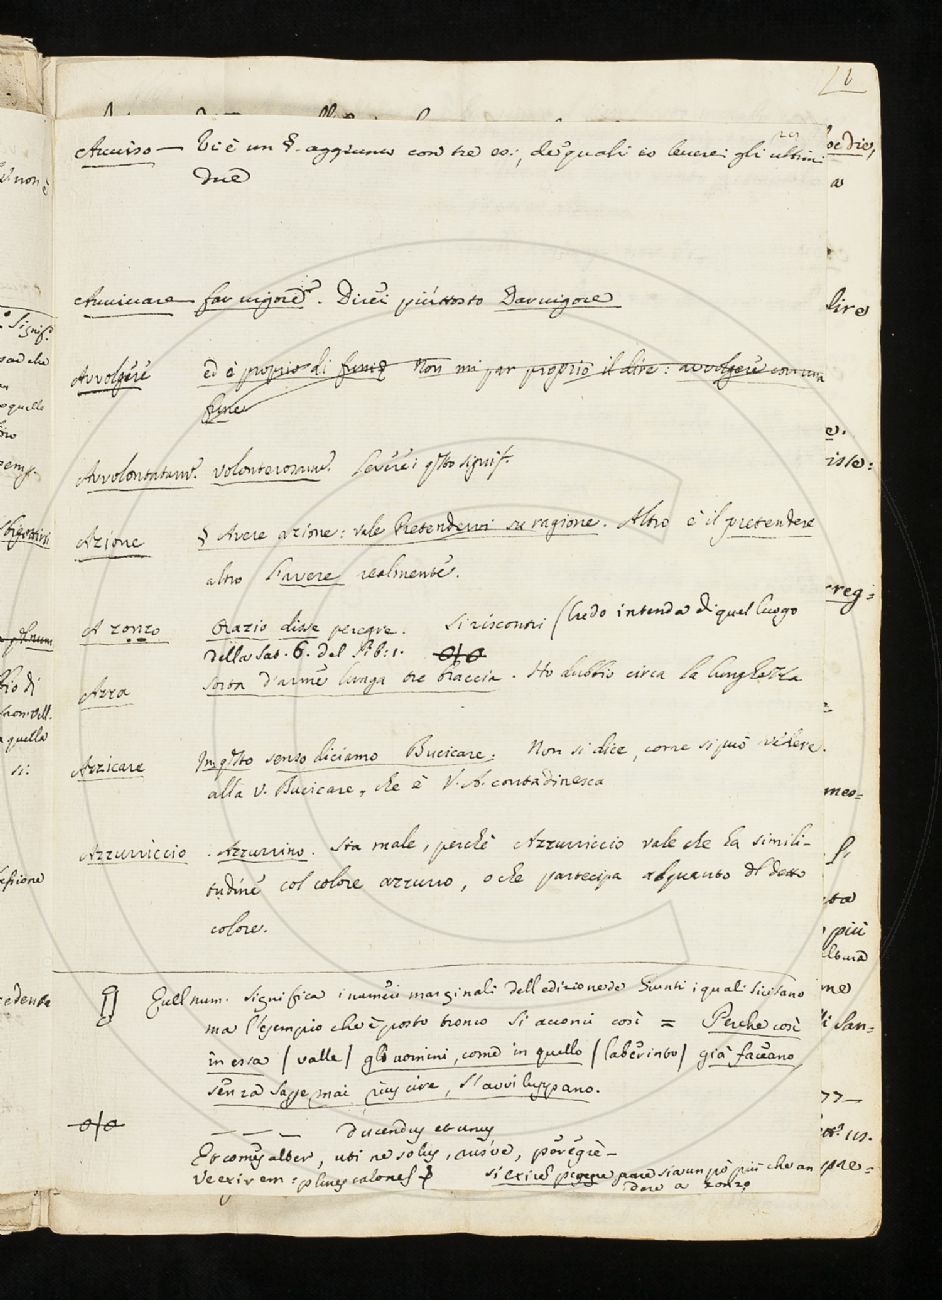 Avviso — Vi è un §. aggiunto con tre es:, de' quali io leverei gli ultimi
due
Avvivare — far vigore. Direi piuttosto Dar vigore
Avvolgere ed è proprio di fune Non mi par proprio il dire: avvolgere con una
fune
Avvolontatam.e volonterosam.e Leverei q.sto signif.
Azione § Avere azione: vale Pretendervi su ragione. Altro è il pretendere
altro l'avere realmente.
A zonzo Orazio disse peregre. Si riscontri (Credo intenda di quel luogo
della Sat. 6. del lib: 1.
Azza sorta d'arme lunga tre braccia. Ho dubbio circa la lunghezza
Azzicare In q.sto senso diciamo Bucicare; Non si dice, come si può vedere
alla v. Bucicare, che è V. A. contadinesca
Azzurriccio . Azzurrino. Sta male, perchè Azzurriccio vale che ha simili-
tudine col colore azzurro, o che partecipa alquanto di detto
colore.
Quel num. significa i numeri marginali dell'edizione de Giunti i quali si usano
ma l'esempio che è posto tronco si acconci così = Perche così
in essa (valle) gli uomini, come in quello (laberinto) già faceano,
senza saper mai riuscire, s'avviluppano.
— — — Ducendus et unus
Et comes alter, uti ne solus, rusve, peregre-
ve exirem: plures calones
si exire peregre pare sia un po' più che an
dare a zonzo